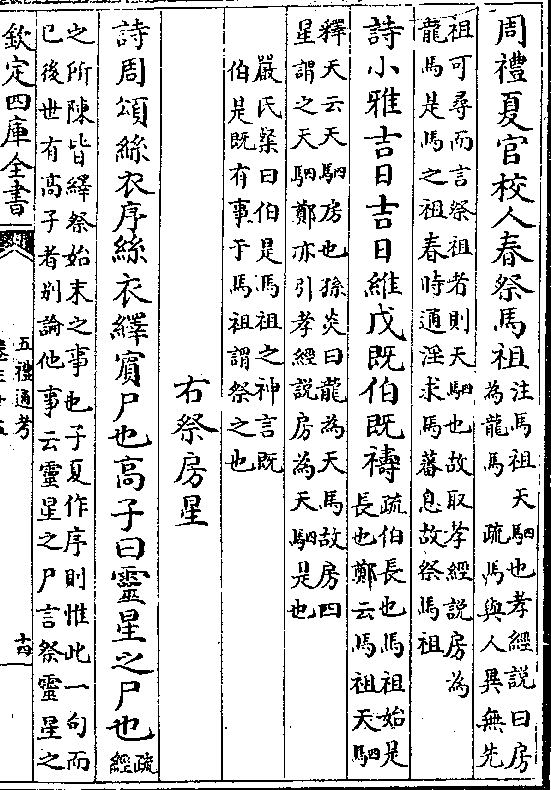 周禮夏官校人春祭馬祖
注馬祖天駟也孝經說曰房
為龍馬　疏馬與人異無先
祖可尋而言祭祖者則天駟也故取孝經說房為
龍馬是馬之祖春時通淫求馬蕃息故祭馬祖
詩小雅吉日吉日維戊既伯既禱
疏伯長也馬祖始是
長也鄭云馬祖天駟
釋天云天駟房也孫炎曰龍為天馬故房四
星謂之天駟鄭亦引孝經說房為天駟是也
嚴氏粲曰伯是馬祖之神言既
伯是既有事于馬祖謂祭之也
右祭房星
詩周頌絲衣序絲衣繹賓尸也高子曰靈星之尸也
疏
經
之所陳皆繹祭始末之事也子夏作序則惟此一句而
已後世有高子者别論他事云靈星之尸言祭靈星之
欽定四庫全書
五禮通考
十四